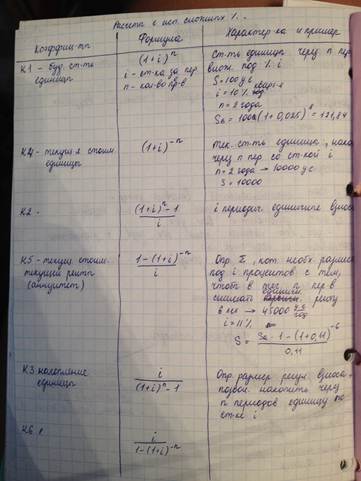 Расчеты с исп. сложных %.
Коэффи-ты
Формула
Характер-ка и пример
К1 - буд. ст-ть
единицы
(1+i)^n
i - ст-ка за пер
n - кол-во пр-в
Ст-ть единицы через n пер
влож. под % i
S=100 у.е
i=10% кварт-я
n=2 года
Sn=100(1+0,025)^8=121,84
К4 - текущ-я стоим.
единицы
(1+i)^-n
Тек. ст-ть единицы,
через n пер со ст-кой i
n=2 года → 10000 у.е
S=10000
К2 -
(1+i)^n - 1
i
i периодич. единичные взносы
К5 - текущ. стоим.
текущей
(аннуитет)
1-(1+i)^-n
i
Опр. Σ, кот. необх.
под i процентов с тем,
чтобы в теч. n пер в
единичн.
6 лет → 45000 у.е/год
i=11%
S = Sa · 1-(1+0,11)^-6
0,11
К3 накопление
единицы
i
(1+i)^n - 1
Опр. размер регул. взноса,
позвол. накопить через
n периодов единицу по
ст-ке i
К6
i
1-(1+i)^-n